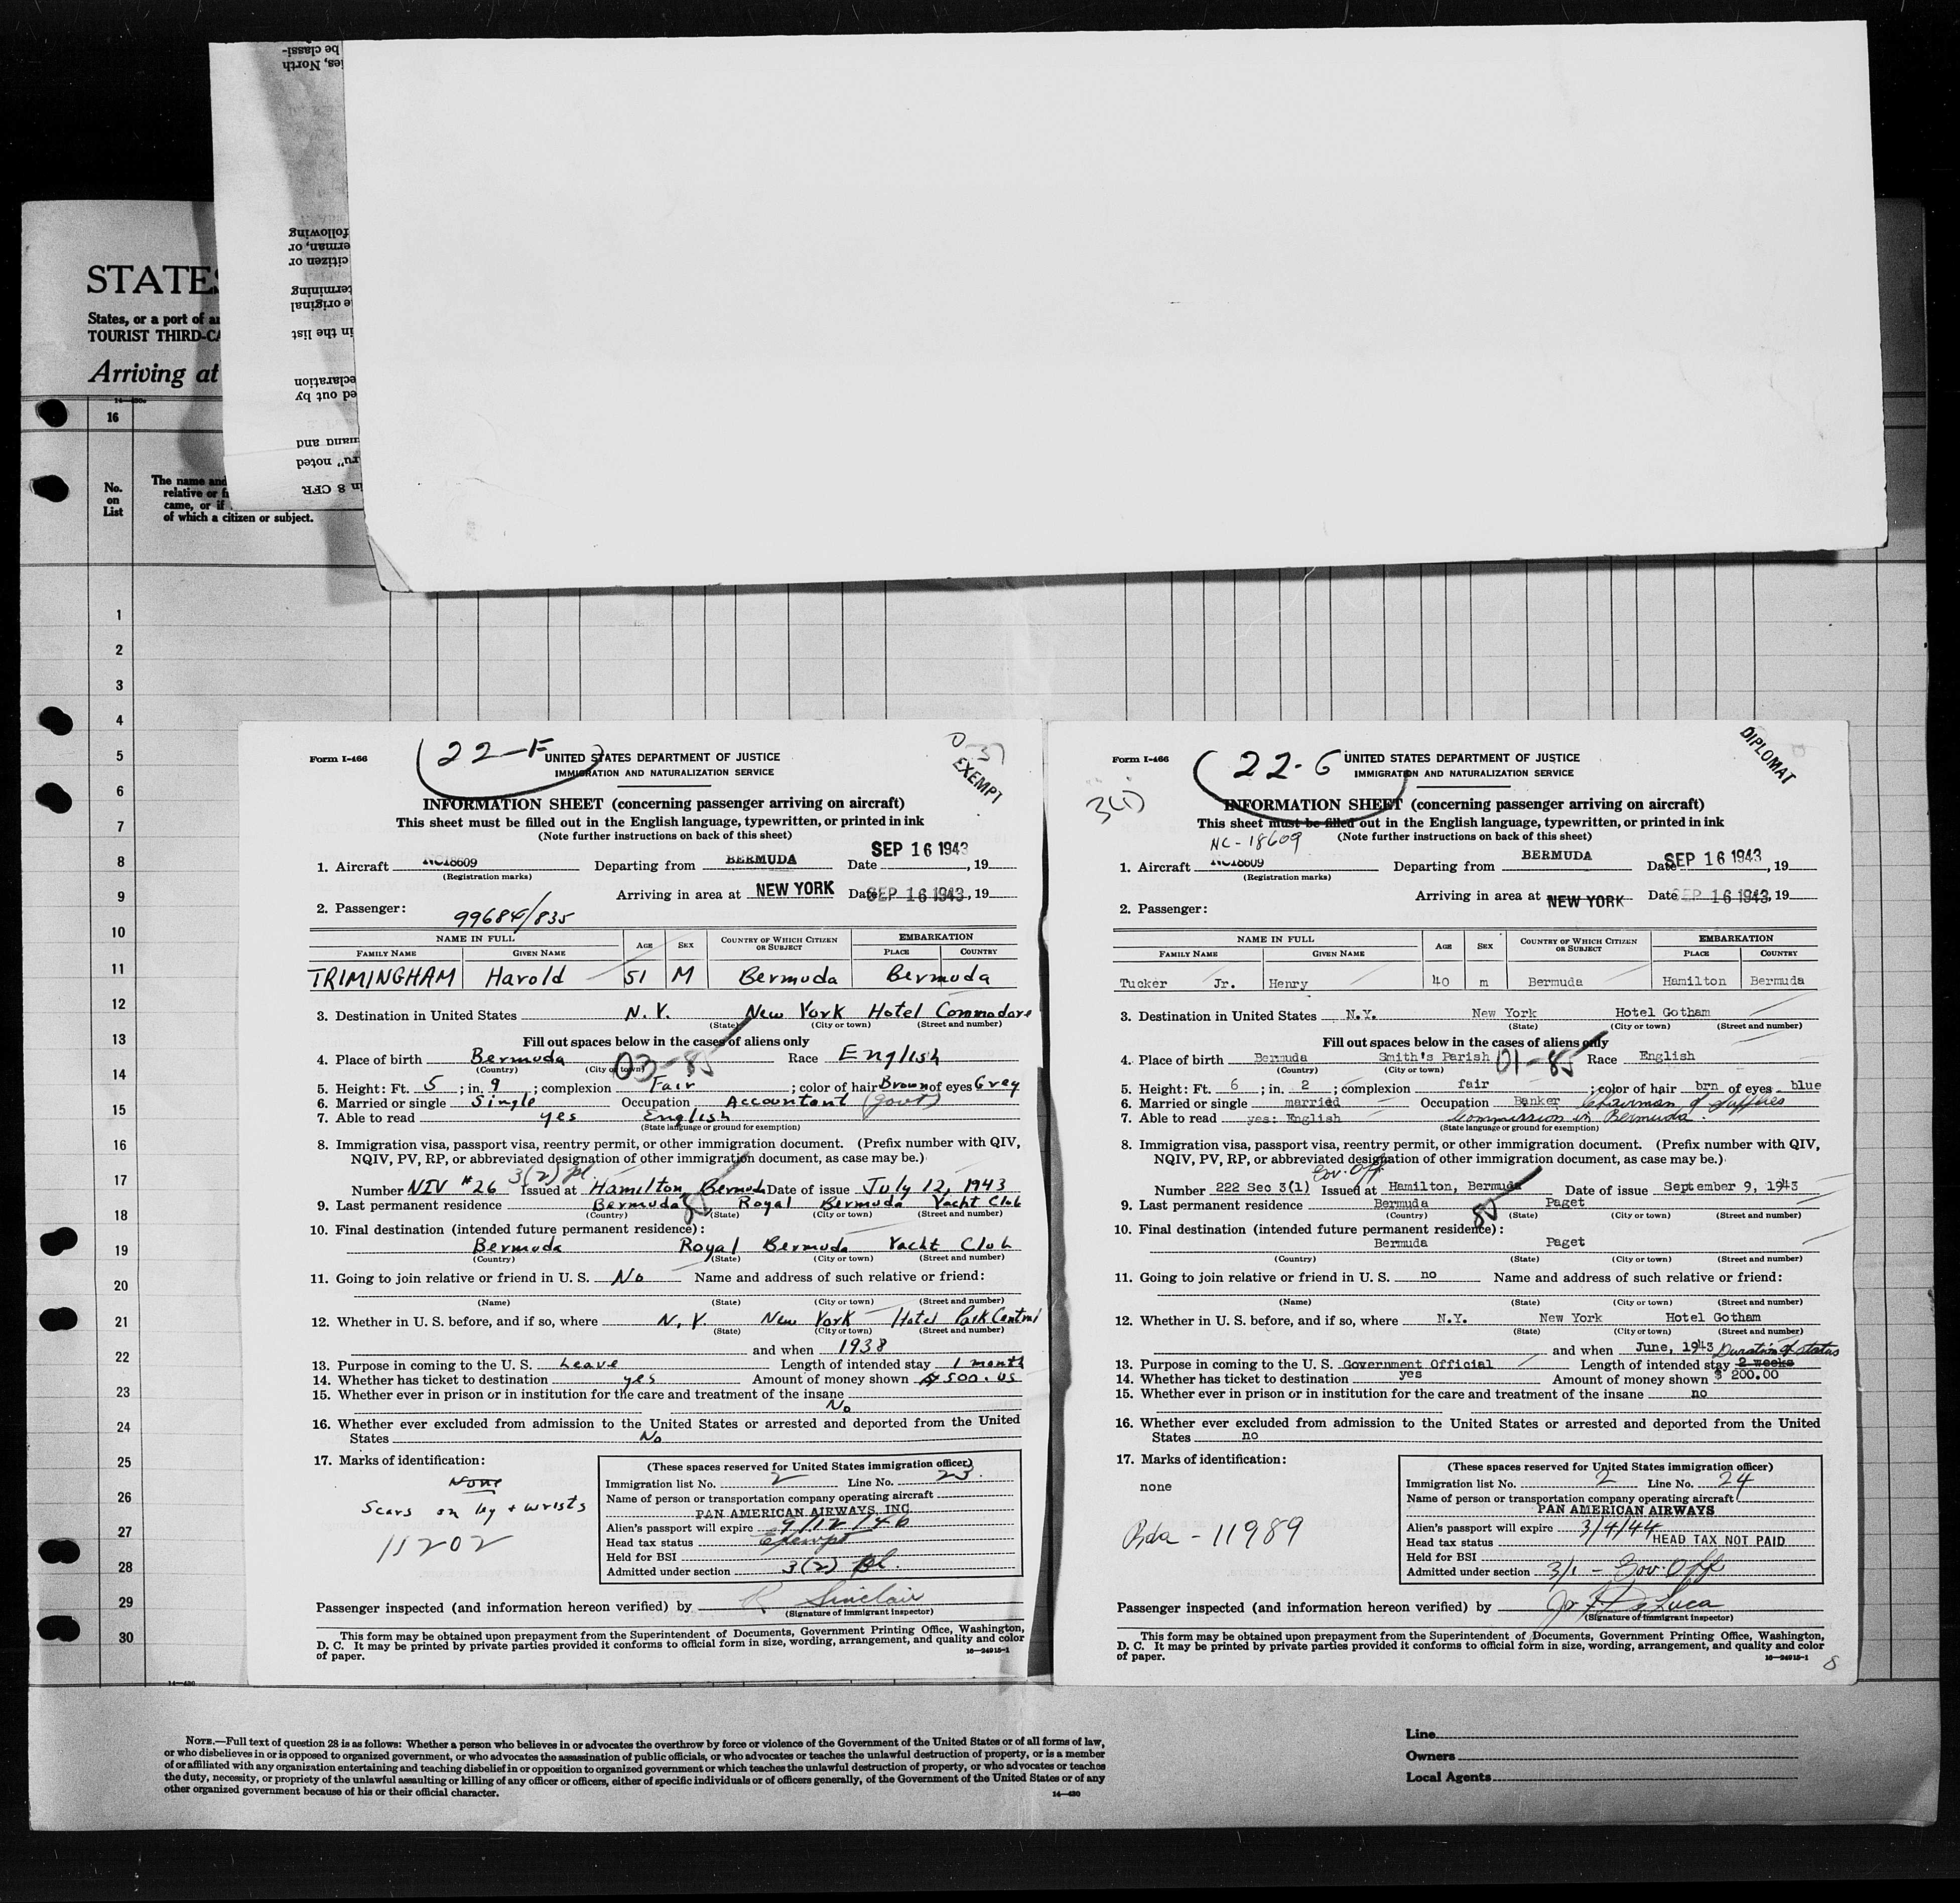 STATES
States, or a port of
TOURIST THIRD-CA
Arriving at
16
No.
on
List
The name and
relative or
came, or if
of which a citizen or subject.
be classi-
North
following
erman, or
citizen or
original
in the list
ed out by
and
noted
in 8 CFR
1
2
3
4
5
6
7
8
9
10
11
12
13
14
15
16
17
18
19
20
21
22
23
24
25
26
27
28
29
30
Form I-466
(22-F)
UNITED STATES DEPARTMENT OF JUSTICE
IMMIGRATION AND NATURALIZATION SERVICE
EXEMPT
INFORMATION SHEET (concerning passenger arriving on aircraft)
This sheet must be filled out in the English language, typewritten, or printed in ink
(Note further instructions on back of this sheet)
1. Aircraft NC18609 Departing from BERMUDA Date SEP 16 1943, 19
(Registration marks)
Arriving in area at NEW YORK Date SEP 16 1943, 19
2. Passenger: 99684/835
NAME IN FULL AGE SEX COUNTRY OF WHICH CITIZEN OR SUBJECT EMBARKATION
FAMILY NAME GIVEN NAME PLACE COUNTRY
TRIMINGHAM Harold 51 M Bermuda Bermuda
3. Destination in United States N.Y. New York Hotel Commodore
(State) (City or town) (Street and number)
Fill out spaces below in the cases of aliens only
4. Place of birth Bermuda 03-85 Race English
(Country) (City or town)
5. Height: Ft. 5; in. 9; complexion Fair; color of hair Brown of eyes Grey
6. Married or single Single Occupation Accountant (Govt)
7. Able to read yes English
(State language or ground for exemption)
8. Immigration visa, passport visa, reentry permit, or other immigration document. (Prefix number with QIV,
NQIV, PV, RP, or abbreviated designation of other immigration document, as case may be.)
3(2)
Number NIV #26 Issued at Hamilton Bermuda Date of issue July 12, 1943
9. Last permanent residence Bermuda 85 Royal Bermuda Yacht Club
(Country) (State) (City or town) (Street and number)
10. Final destination (intended future permanent residence):
Bermuda Royal Bermuda Yacht Club
(Country) (State) (City or town) (Street and number)
11. Going to join relative or friend in U. S. No Name and address of such relative or friend:
(Name) (State) (City or town) (Street and number)
12. Whether in U. S. before, and if so, where N.Y. New York Hotel Park Central
(State) (City or town) (Street and number)
and when 1938
13. Purpose in coming to the U. S. Leave Length of intended stay 1 month
14. Whether has ticket to destination yes Amount of money shown $500. US
15. Whether ever in prison or in institution for the care and treatment of the insane
No
16. Whether ever excluded from admission to the United States or arrested and deported from the United
States No
17. Marks of identification:
None
Scars on leg + wrists
11202
(These spaces reserved for United States immigration officer)
Immigration list No. 2 Line No. 23.
Name of person or transportation company operating aircraft
PAN AMERICAN AIRWAYS, INC
Alien's passport will expire 9/12/46
Head tax status Exempt
Held for BSI
Admitted under section 3(2)
Passenger inspected (and information hereon verified) by R Sinclair
(Signature of immigrant inspector)
This form may be obtained upon prepayment from the Superintendent of Documents, Government Printing Office, Washington,
D. C. It may be printed by private parties provided it conforms to official form in size, wording, arrangement, and quality and color
of paper.
16-24915-1
Form I-466
(22-G)
UNITED STATES DEPARTMENT OF JUSTICE
IMMIGRATION AND NATURALIZATION SERVICE
DIPLOMAT
3(1)
INFORMATION SHEET (concerning passenger arriving on aircraft)
This sheet must be filled out in the English language, typewritten, or printed in ink
(Note further instructions on back of this sheet)
NC-18609
1. Aircraft NC18609 Departing from BERMUDA Date SEP 16 1943, 19
(Registration marks)
Arriving in area at NEW YORK Date SEP 16 1943, 19
2. Passenger:
NAME IN FULL AGE SEX COUNTRY OF WHICH CITIZEN OR SUBJECT EMBARKATION
FAMILY NAME GIVEN NAME PLACE COUNTRY
Tucker Jr. Henry 40 m Bermuda Hamilton Bermuda
3. Destination in United States N.Y. New York Hotel Gotham
(State) (City or town) (Street and number)
Fill out spaces below in the cases of aliens only
4. Place of birth Bermuda Smith's Parish 01-85 Race English
(Country) (City or town)
5. Height: Ft. 6; in. 2; complexion fair; color of hair brn of eyes blue
6. Married or single married Occupation Banker Chairman of Supplies
7. Able to read yes: English Commission in Bermuda.
(State language or ground for exemption)
8. Immigration visa, passport visa, reentry permit, or other immigration document. (Prefix number with QIV,
NQIV, PV, RP, or abbreviated designation of other immigration document, as case may be.)
Gov. Off
Number 222 Sec 3(1) Issued at Hamilton, Bermuda Date of issue September 9, 1943
9. Last permanent residence Bermuda 85 Paget
(Country) (State) (City or town) (Street and number)
10. Final destination (intended future permanent residence):
Bermuda Paget
(Country) (State) (City or town) (Street and number)
11. Going to join relative or friend in U. S. no Name and address of such relative or friend:
(Name) (State) (City or town) (Street and number)
12. Whether in U. S. before, and if so, where N.Y. New York Hotel Gotham
(State) (City or town) (Street and number)
and when June, 1943 Duration of status
13. Purpose in coming to the U. S. Government Official Length of intended stay 2 weeks
14. Whether has ticket to destination yes Amount of money shown $ 200.00
15. Whether ever in prison or in institution for the care and treatment of the insane no
16. Whether ever excluded from admission to the United States or arrested and deported from the United
States no
17. Marks of identification:
none
Bda - 11989
(These spaces reserved for United States immigration officer)
Immigration list No. 2 Line No. 24
Name of person or transportation company operating aircraft
PAN AMERICAN AIRWAYS
Alien's passport will expire 3/4/44
Head tax status HEAD TAX NOT PAID
Held for BSI
Admitted under section 3/1 - Gov. Off
Passenger inspected (and information hereon verified) by De Luca
(Signature of immigrant inspector)
This form may be obtained upon prepayment from the Superintendent of Documents, Government Printing Office, Washington,
D. C. It may be printed by private parties provided it conforms to official form in size, wording, arrangement, and quality and color
of paper.
16-24915-1
8
14-430
NOTE.—Full text of question 28 is as follows: Whether a person who believes in or advocates the overthrow by force or violence of the Government of the United States or of all forms of law,
or who disbelieves in or is opposed to organized government, or who advocates the assassination of public officials, or who advocates or teaches the unlawful destruction of property, or is a member
of or affiliated with any organization entertaining and teaching disbelief in or opposition to organized government or which teaches the unlawful destruction of property, or who advocates or teaches
the duty, necessity, or propriety of the unlawful assaulting or killing of any officer or officers, either of specific individuals or of officers generally, of the Government of the United States or of any
other organized government because of his or their official character.
14-430
Line
Owners
Local Agents